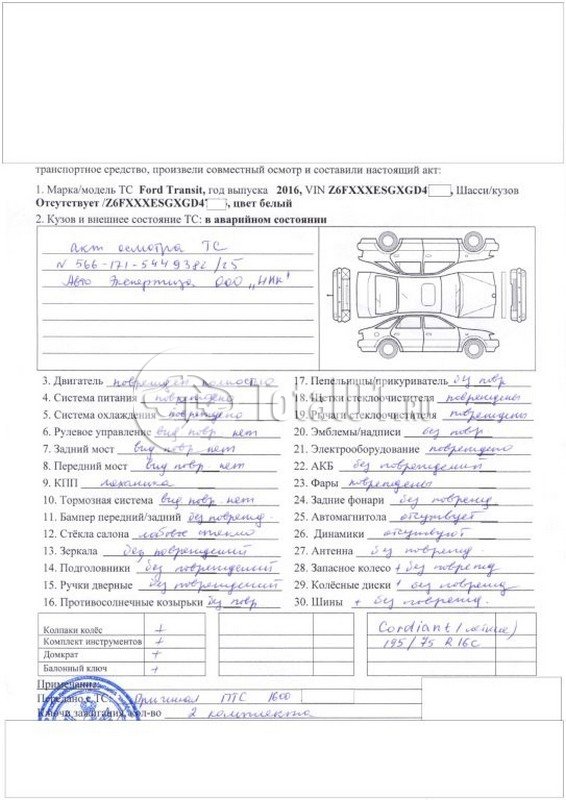 транспортное средство, произвели совместный осмотр и составили настоящий акт:
1. Марка/модель ТС Ford Transit, год выпуска 2016, VIN Z6FXXXESGXGD4 , Шасси/кузов
Отсутствует /Z6FXXXESGXGD4 , цвет белый
2. Кузов и внешнее состояние ТС: в аварийном состоянии
Акт осмотра ТС
N 566-171-5449382/25
Авто Экспертиза ООО "НКК"
3. Двигатель поврежден полностью
4. Система питания повреждено
5. Система охлаждения повреждено
6. Рулевое управление вид повр. нет
7. Задний мост вид повр. нет
8. Передний мост вид повр. нет
9. КПП механика
10. Тормозная система вид повр нет
11. Бампер передний/задний без поврежд.
12. Стёкла салона лобовое стекло
13. Зеркала без повреждений
14. Подголовники без повреждений
15. Ручки дверные без повреждений
16. Противосолнечные козырьки без повр
17. Пепельницы/прикуриватель без повр
18. Щетки стеклоочистителя повреждены
19. Рычаги стеклоочистителя повреждены
20. Эмблемы/надписи без повр
21. Электрооборудование повреждено
22. АКБ без повреждений
23. Фары повреждены
24. Задние фонари без поврежд
25. Автомагнитола отсутствует
26. Динамики отсутствуют
27. Антенна без поврежд
28. Запасное колесо + без поврежд
29. Колёсные диски + без поврежд
30. Шины + без поврежд.
Колпаки колёс +
Комплект инструментов +
Домкрат +
Балонный ключ +
Cordiant (летние)
195/75 R16C
Примечание:
Передано с ТС: Оригинал ПТС 1600
Ключи зажигания, кол-во 2 комплекта